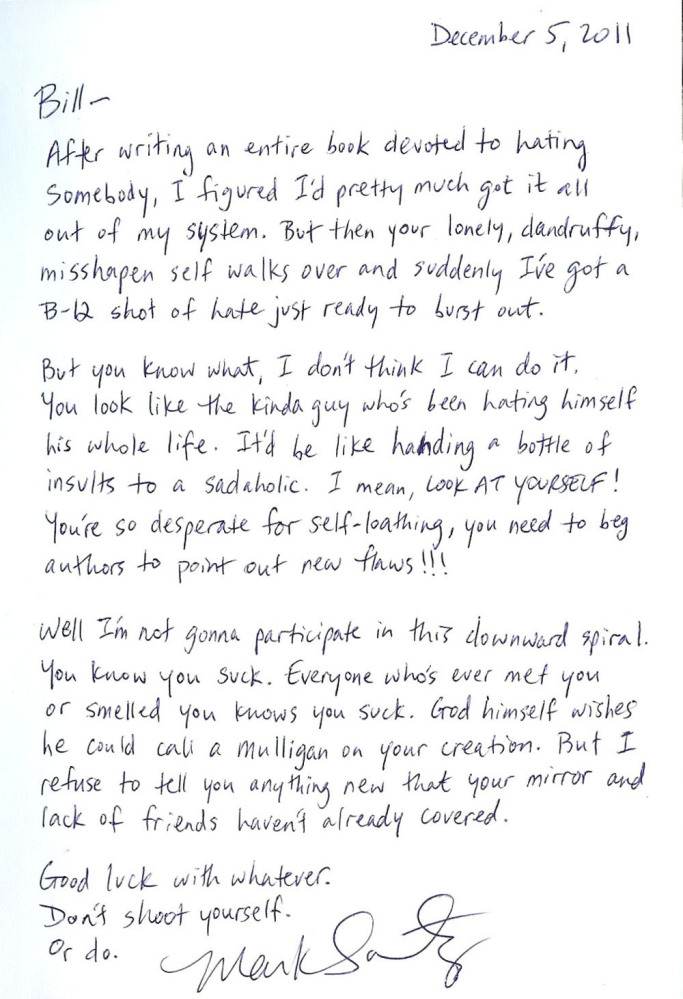 December 5, 2011
Bill-
After writing an entire book devoted to hating
somebody, I figured I'd pretty much got it all
out of my system. But then your lonely, dandruffy,
misshapen self walks over and suddenly I've got a
B-12 shot of hate just ready to burst out.
But you know what, I don't think I can do it.
You look like the kinda guy who's been hating himself
his whole life. It'd be like handing a bottle of
insults to a sadaholic. I mean, LOOK AT YOURSELF!
You're so desperate for self-loathing, you need to beg
authors to point out new flaws!!!
Well I'm not gonna participate in this downward spiral.
You know you suck. Everyone who's ever met you
or smelled you knows you suck. God himself wishes
he could call a mulligan on your creation. But I
refuse to tell you anything new that your mirror and
lack of friends haven't already covered.
Good luck with whatever.
Don't shoot yourself.
Or do.
Mark